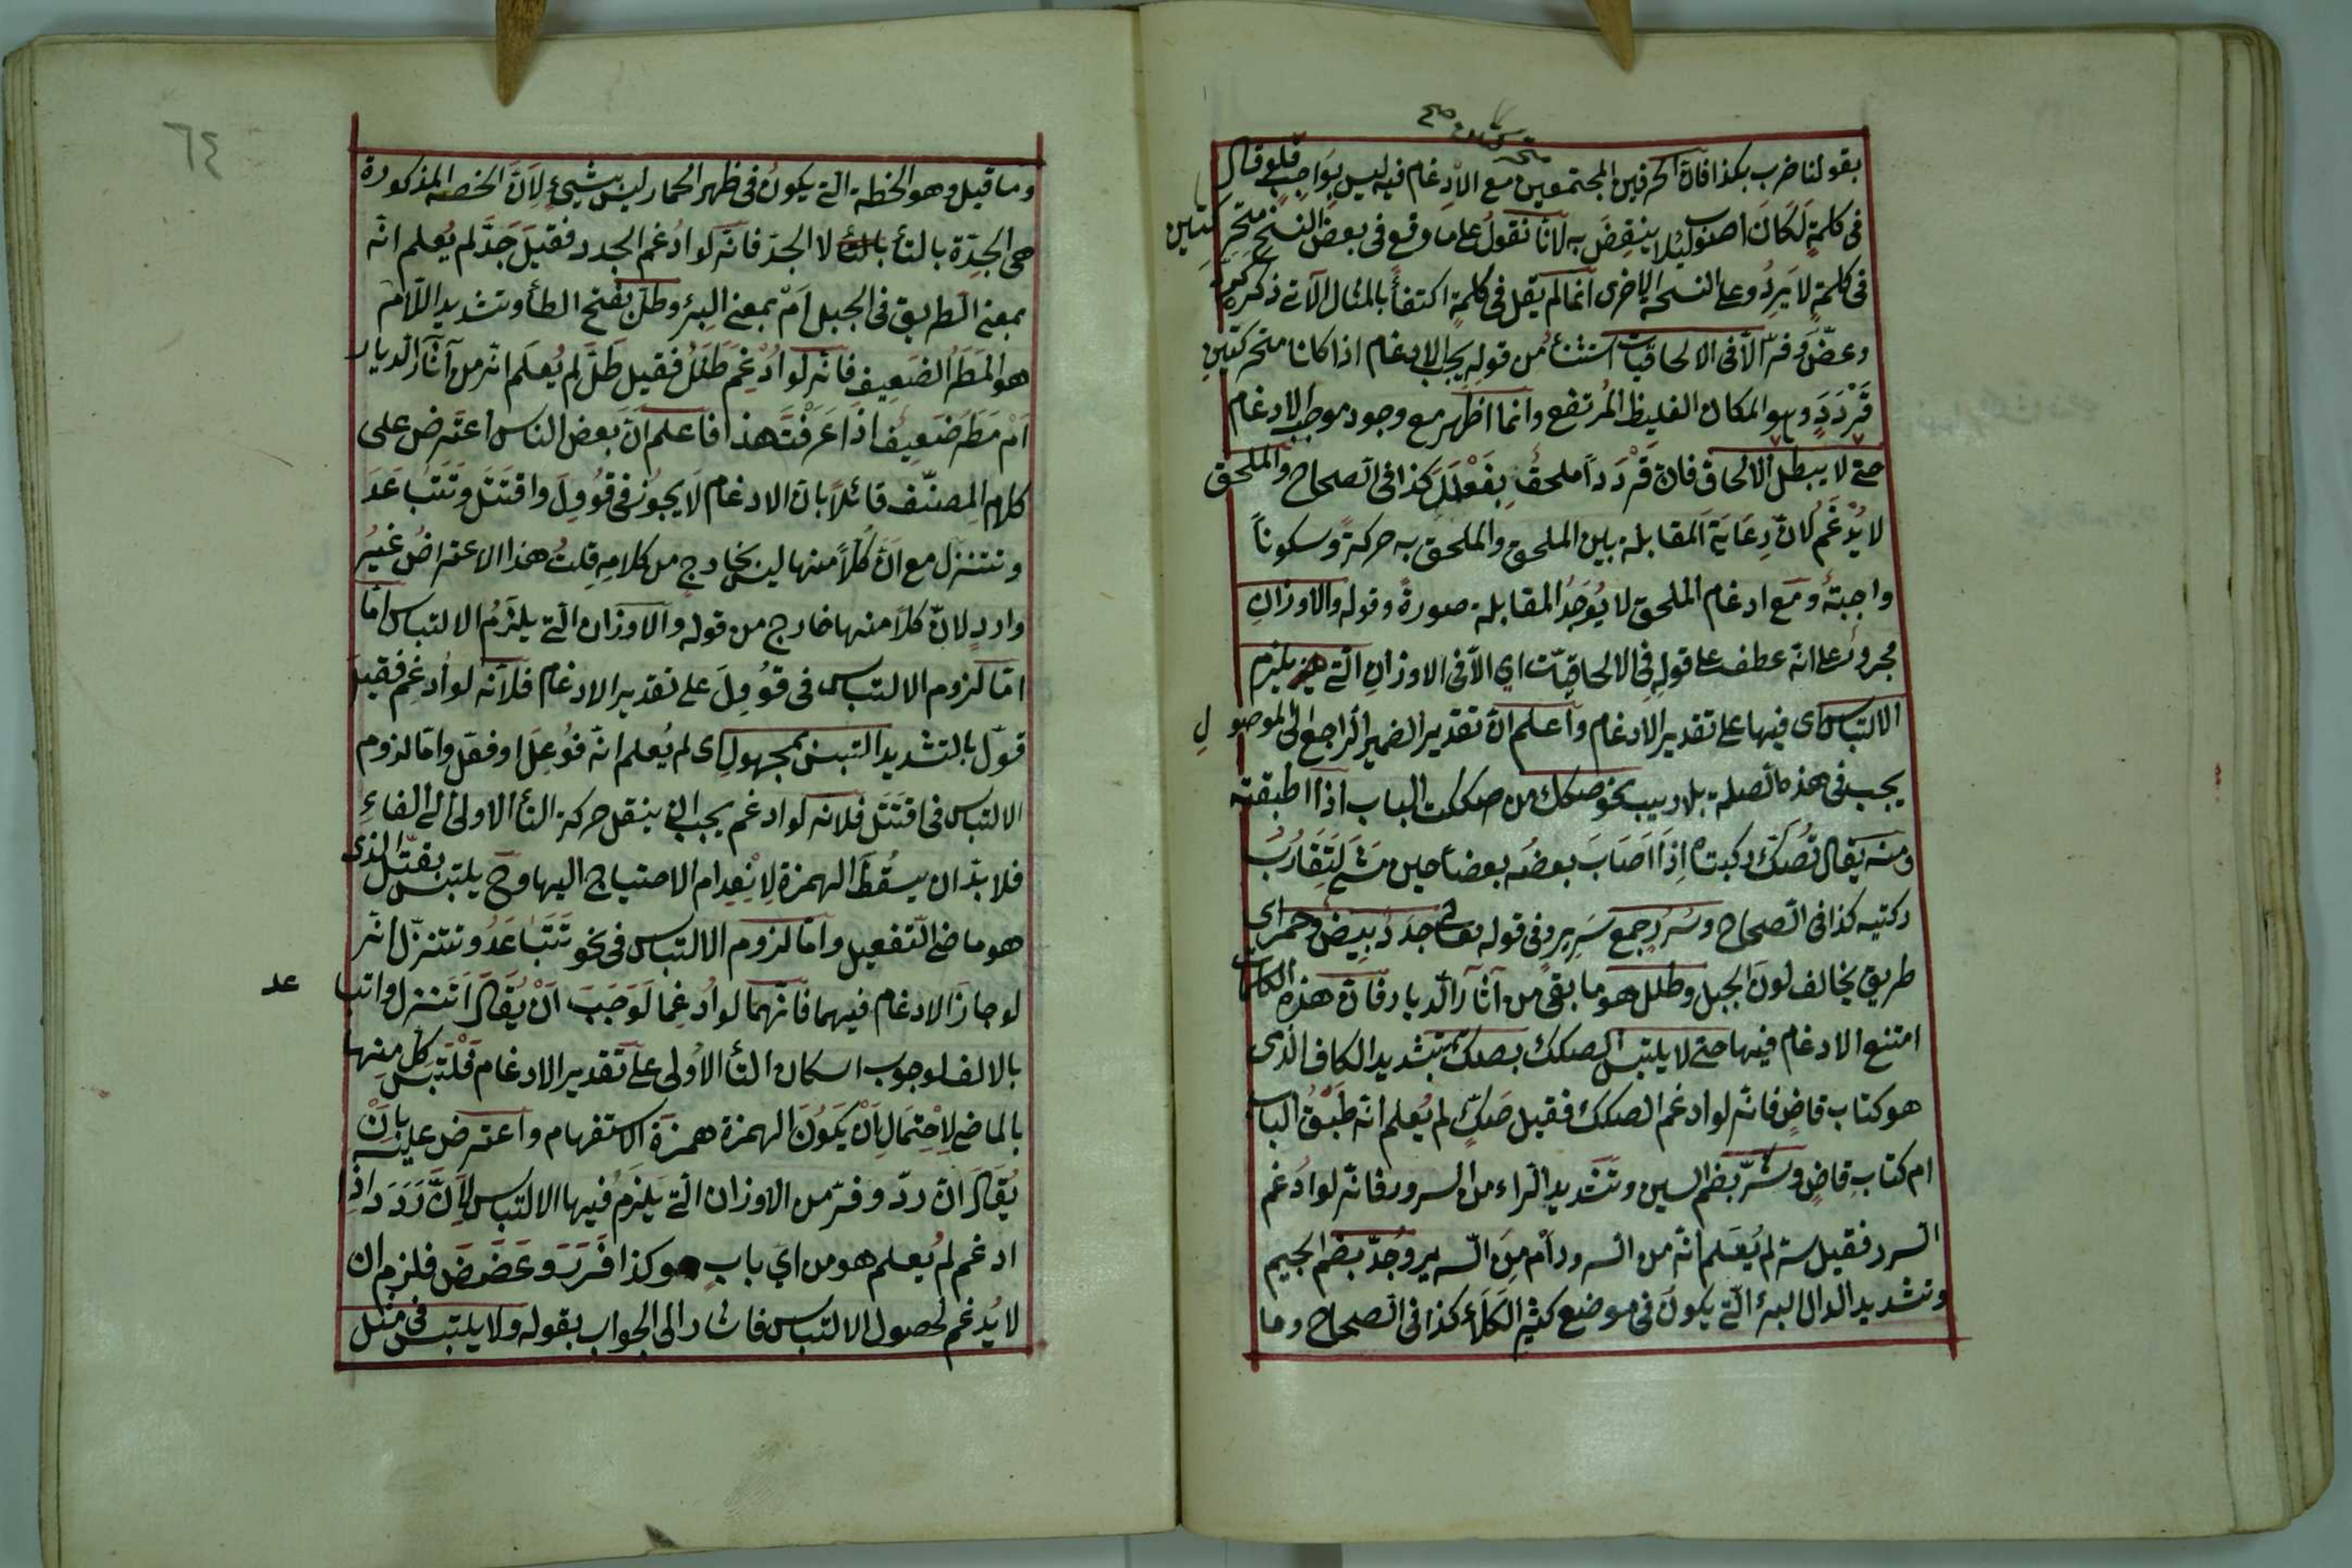 متحركتين صح
بقولنا ضرب بكذا فان الحرفين المجتمعين مع الادغام فيه ليس بواجب فلو قال
فى كلمةٍ لَكَانَ اصنولئلا ينتقض به لانا نقول على ما وقع فى بعض النسخ متحركتين
فى كلمةٍ لا يَرِدُ وعلى النسخة الاخرى انما لم يقل فى كلمةٍ اكتفأً بالمثال الآتى ذكره
وعضّ وفرّ الّا فى الالحاقيات استثنأ من قوله يجب الادغام اذا كانا متحركتين
قَرْدَدٍ وهو المكان الغليظ المُرتفع وانما اظهر مع وجود موجب الادغام
حتى لا يبطل الالحاق فان قَرْدَدَاً ملحقٌ بِفَعْلَلَ كذا فى الصحاح والملحق
لا يُدْغَمُ لانّ رِعَايَةَ المقابلة بين الملحق والملحق به حركةً وسكوناً
واجبةٌ ومَع ادغام الملحق لا يُوَجَدُ المقابلة صورةً وقوله والاوزانِ
مجرورٌ على انّه عطف على قولِهِ فى الالحاقيّات اي الّا فى الاوزانِ التى يلزم
الالتباس اى فيها على تقدير الادغام واعلم انّ تقدير الضمير الراجع الى الموصول
يجب فى هذه الصلة بلا ريب نحو صَكَك من صككت الباب اذا اطبقته
ومنه يقال تَصُكّ ركبتاه اِذَا اَصَابَ بعضُه بعضاً حين مَشَى لِتَقَارُبِ
ركبتيه كذا فى الصحاح وسُرُرٍ جمع سَرِيرٍ وفى قوله تعالى جدد بيض وحمر اى
طريق يخالف لونَ الجبل وطلل هو ما بقى من آثار الديار فان هذه الكلمات
امتنع الادغام فيها حتى لا يلتبس الصكك بصكّ بتشديد الكاف الذى
هو كتاب قاضٍ فانّه لو ادغم الصكك فقيل صَكٌّ لم يُعلم انّه طَبَقُ الباب
ام كتابِ قاضٍ وسُرّ بضم السين وتشديد الراء من السرور فانّه لو ادغم
السرر فقيل سرّ لم يُعَلم انّه من السرور اَم مِنَ السرير وجُدّ بضم الجيم
وتشديد الدال البئر التى يكون فى موضع كثير الكَلَأ كذا فى الصحاح وما
٦٤
وما قيل وهو الخطة التى يكونُ فى ظهر الحمار ليس بشيئٍ لِاَنَّ الخصه المذكورة
هى الجِدّة بالتأ لا الجدّ فانّه لو ادُغم الجدد فقيلَ جَدَّ لم يُعلم انّه
بمعنى الطريق فى الجبل اَمْ بمعنى البِئر وطلّ بفتح الطأ وتشديد اللام
هو المَطَر الضعِيف فانّه لو ادُغِمَ طَلَلٌ فقيل طَلّ لم يُعلَم انّه من آثار الديار
اَمْ مَطَر ضَعِيف اذَا عَرَفْتَ هذا فاعلم انّ بعض الناس اعترض على
كلام المصنّف قائلاً بانّ الادغام لا يجوز فى قُوُوِلَ واقتَتَل وتَتَبَاعَدَ
وتتنزل مع انّ كلاً منها ليس بخارجٍ من كلامِه قلتُ هذا الاعتراضُ غيرُ
واردٍ لانّ كلاً منها خارج من قوله والاوزان التى يلزم الالتباس امّا
امّا لزوم الالتباس فى قُوُوِلَ على تقدير الادغام فلانّه لو اُدغِم فقيل
قوّل بالتشديد التبس بمجهول اى لم يُعلم انّه فُوْعِلَ او فقل وامّا لزوم
الالتباس فى اقتَتَل فلانه لو ادغم يجب ان ينقل حركة التأ الاولى الى الفاءِ
فلا بدّ ان يسقُطَ الهمزة لِانْعِدام الاحتياج اليها وح يلتبس بقتّل الذى
هو ماضى التفعيل وامّا لزوم الالتباس فى نحو تَتَبَاعَدُ وتتنزّل انّه
لو جازَ الادغام فيهما فانّهما لو اُدغِما لَوَجَبَ اَنْ يُقَالَ اتَنزل واتباعد
بالالف لوجوب اسكان التأ الاُولى على تَقدير الادغام فَلْتَبس كل منهما
بالماضى لِاحْتِمَالِ اَنْ يَكُوُنَ الهمزة همزة الاستفهام واعترض عليه بِاَنْ
يُقَالَ انّ ردّ وفرّ من الاوزان التى يَلزمُ فيها الالتباس لِاَنَّ رَدَدَ اذا
ادغم لم يُعلم هو من ايّ بابٍ هو وكذا فَرَرَ وعَضَضَ فلزم ان
لا يُدغم لحصول الالتباس فاشار الى الجواب بقوله ولا يلتبس فى مثل